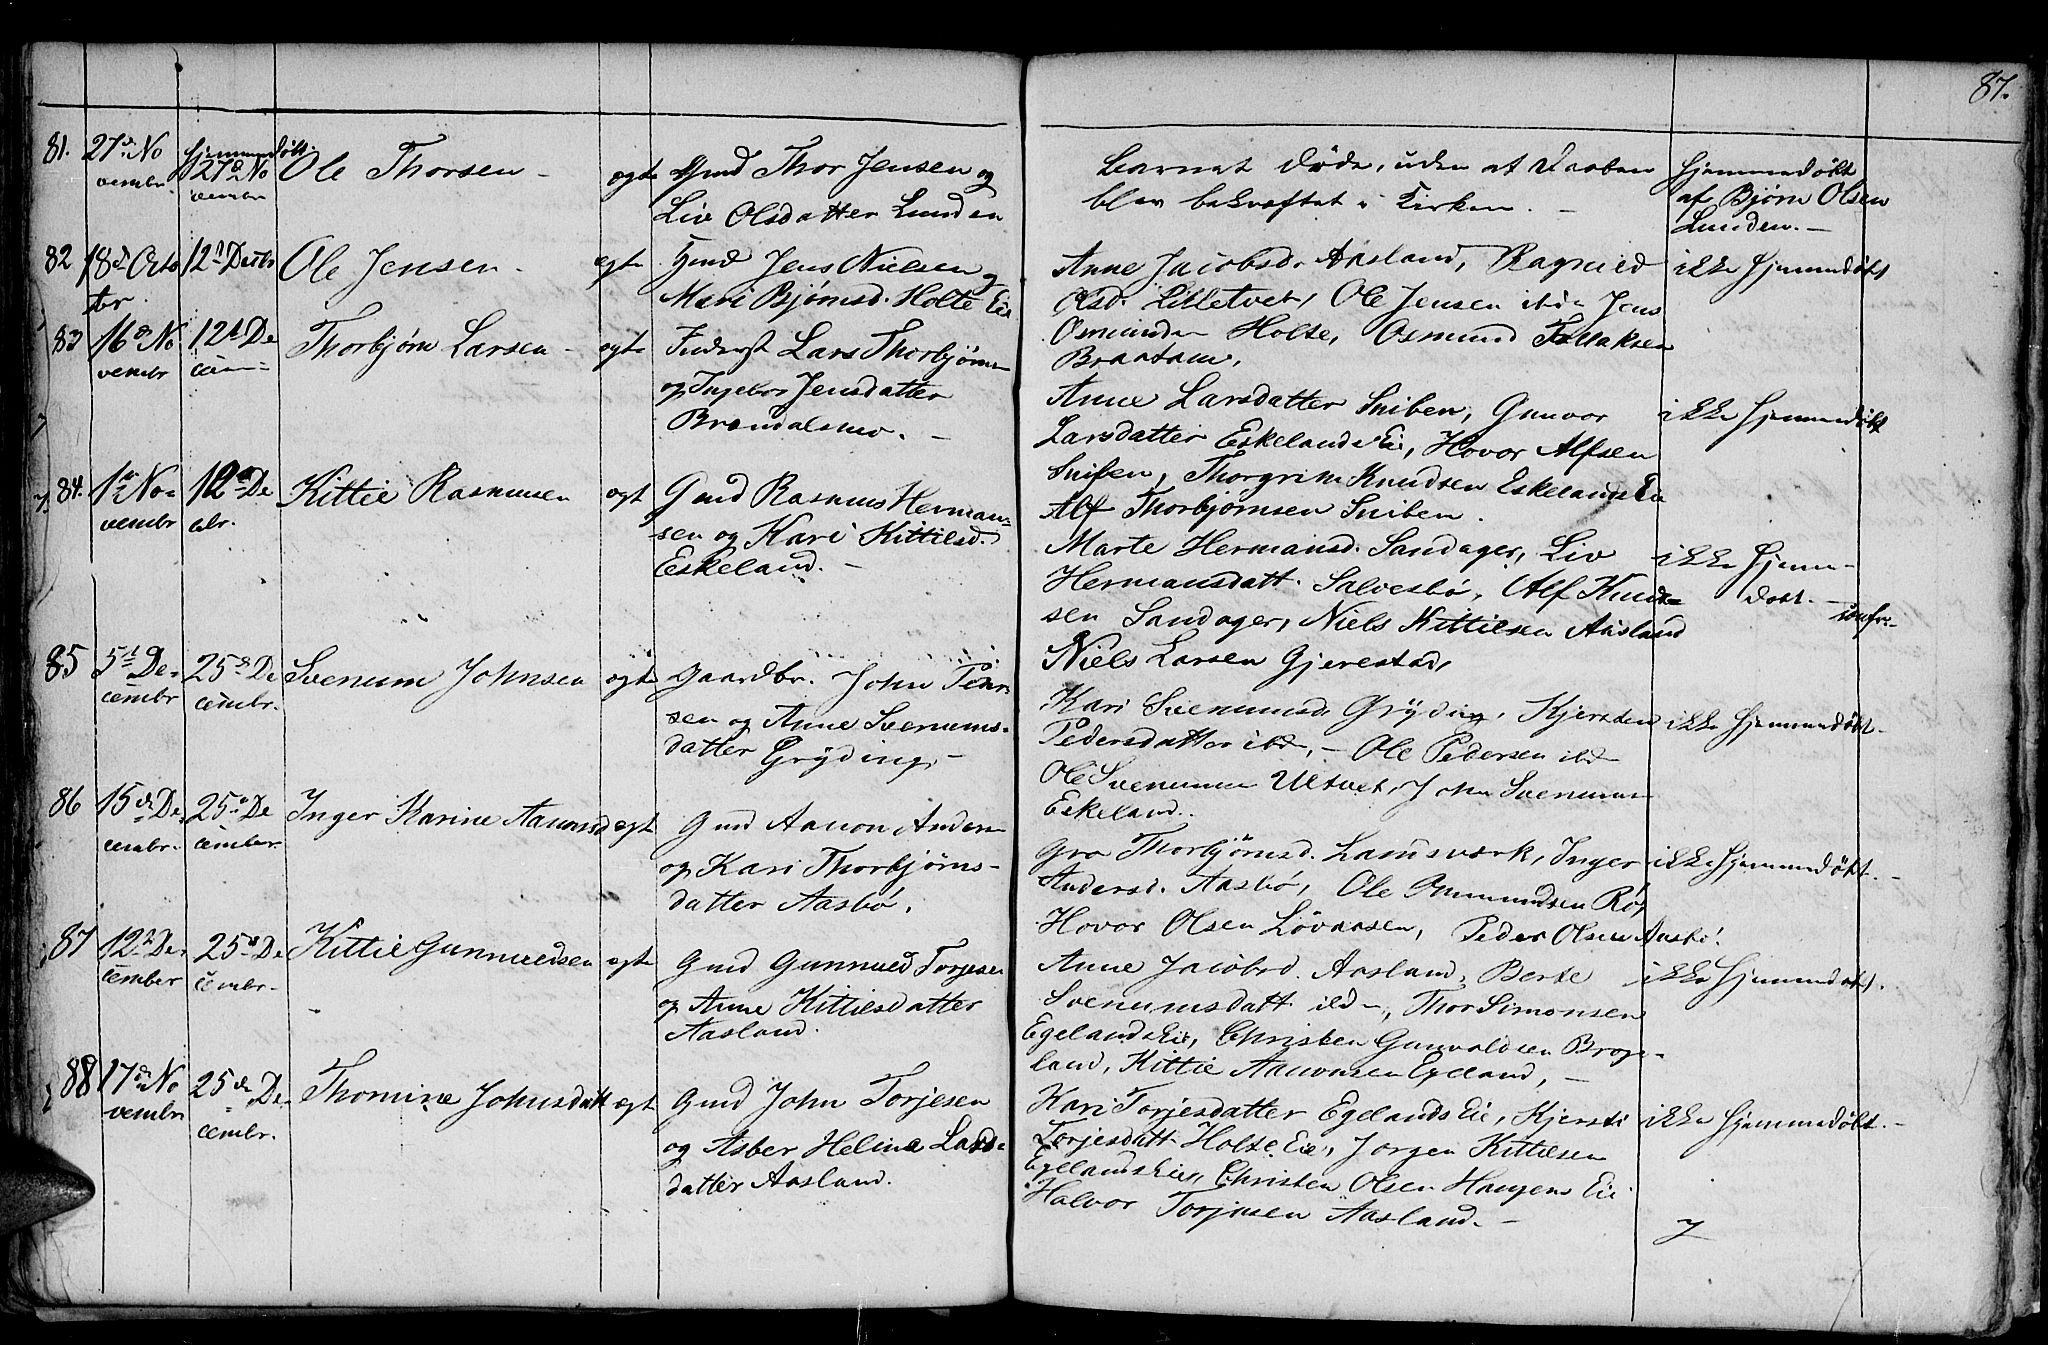 87.
81. 27de No vembr. hjemmedøbt. 27de No vembr Ole Thorsen - ægte Gmd Thor Jensen og
Liv Olsdatter Lunden
Barnet døde, uden at Daaben
blev bekræftet i Kirken. -
hjemmedøbt
af Bjørn Olsen
Lunden. -
82 18de Octo br. 12te Decbr Ole Jensen - ægte Gmd Jens Nielsen og
Mari Bjørnsd. Holte Eie
Anne Jacobsd. Aasland, Ragnild
Olsd. Lilletvet, Ole Jensen ibid Jens
Osmundsen Holte, Osmund Tellaksen
Braatane,
ikke hjemmedøbt
83 16de No vembr 12te De cem- Thorbjørn Larsen - ægte Inderst Lars Thorbjørns-
og Ingebor Jensdatter
Brændalsmo. -
Anne Larsdatter Sniben, Gunvor
Larsdatter Eskelands Eie, Hovor Alfsen
Sniben, Thorgrim Knudsen Eskelands Eie
Alf Thorbjørnsen Sniben.
ikke hjemmedøbt
84. 1ste No- vembr 12te De cbr. Kittil Rasmusen ægt Gmd Rasmus Herman-
sen og Kari Kittilsd.
Eskeland. -
Marte Hermansd. Sandager, Liv
Hermansdatt. Salvesbø, Alf Knud-
sen Sandager, Niels Kittilsen Aasland
Niels Larsen Gjerestad,
ikke hjem-
døbt. -
85 5te De- cembr 25de De cembr. Svenum Johnsen ægte Gaardbr. John Peder-
sen og Anne Svenums-
datter Grýding, -
Kari Svenumsd. Grýding, Kjersten
Pedersdatter ibd, - Ole Pedersen ibd
Ole Svenumsen Ultvet, John Svenumsen
Eskeland.
ikke hjemmedøbt.
86 15de De- cembr. 25de De cember. Inger Karine Aanonsd ægt Gmd Aanon Anders-
og Kari Thorbjørns-
datter Aasbø.
Gro Thorbjørnsd. Landsværk, Inger
Andersd. Aasbø, Ole Gunmundsen Rø,
Hovor Olsen Løvaasen, Peder Olsen Aasbø.
ikke hjemmedøbt. -
87 12te De- cember 25de De cembr. Kittil Gunmundsen ægte Gmd Gunmund Torjesen
og Anne Kittilsdatter
Aasland.
Anne Jacobsd. Aasland, Berte
Svenumsdatt ibd -, Thor Simonsen
Egelands Eie, Christen Gunvaldsen Broge-
land, Kittil Aanonsen Egeland, -
ikke hjemmedøbt.
88 17de No vembr 25de De cembr. Thomine Johnsdatt ægt Gmd John Torjesen
og Asber Heline Lars-
datter Aasland.
Kari Torjesdatter Egelands Eie, Kjersti
Torjesdatt Holte Eie, Jorgen Kittilsen
Egelands Eie, Christen Olsen Haugens Eie
Halvor Torjusen Aasland. -
ikke hjemmedøbt. -